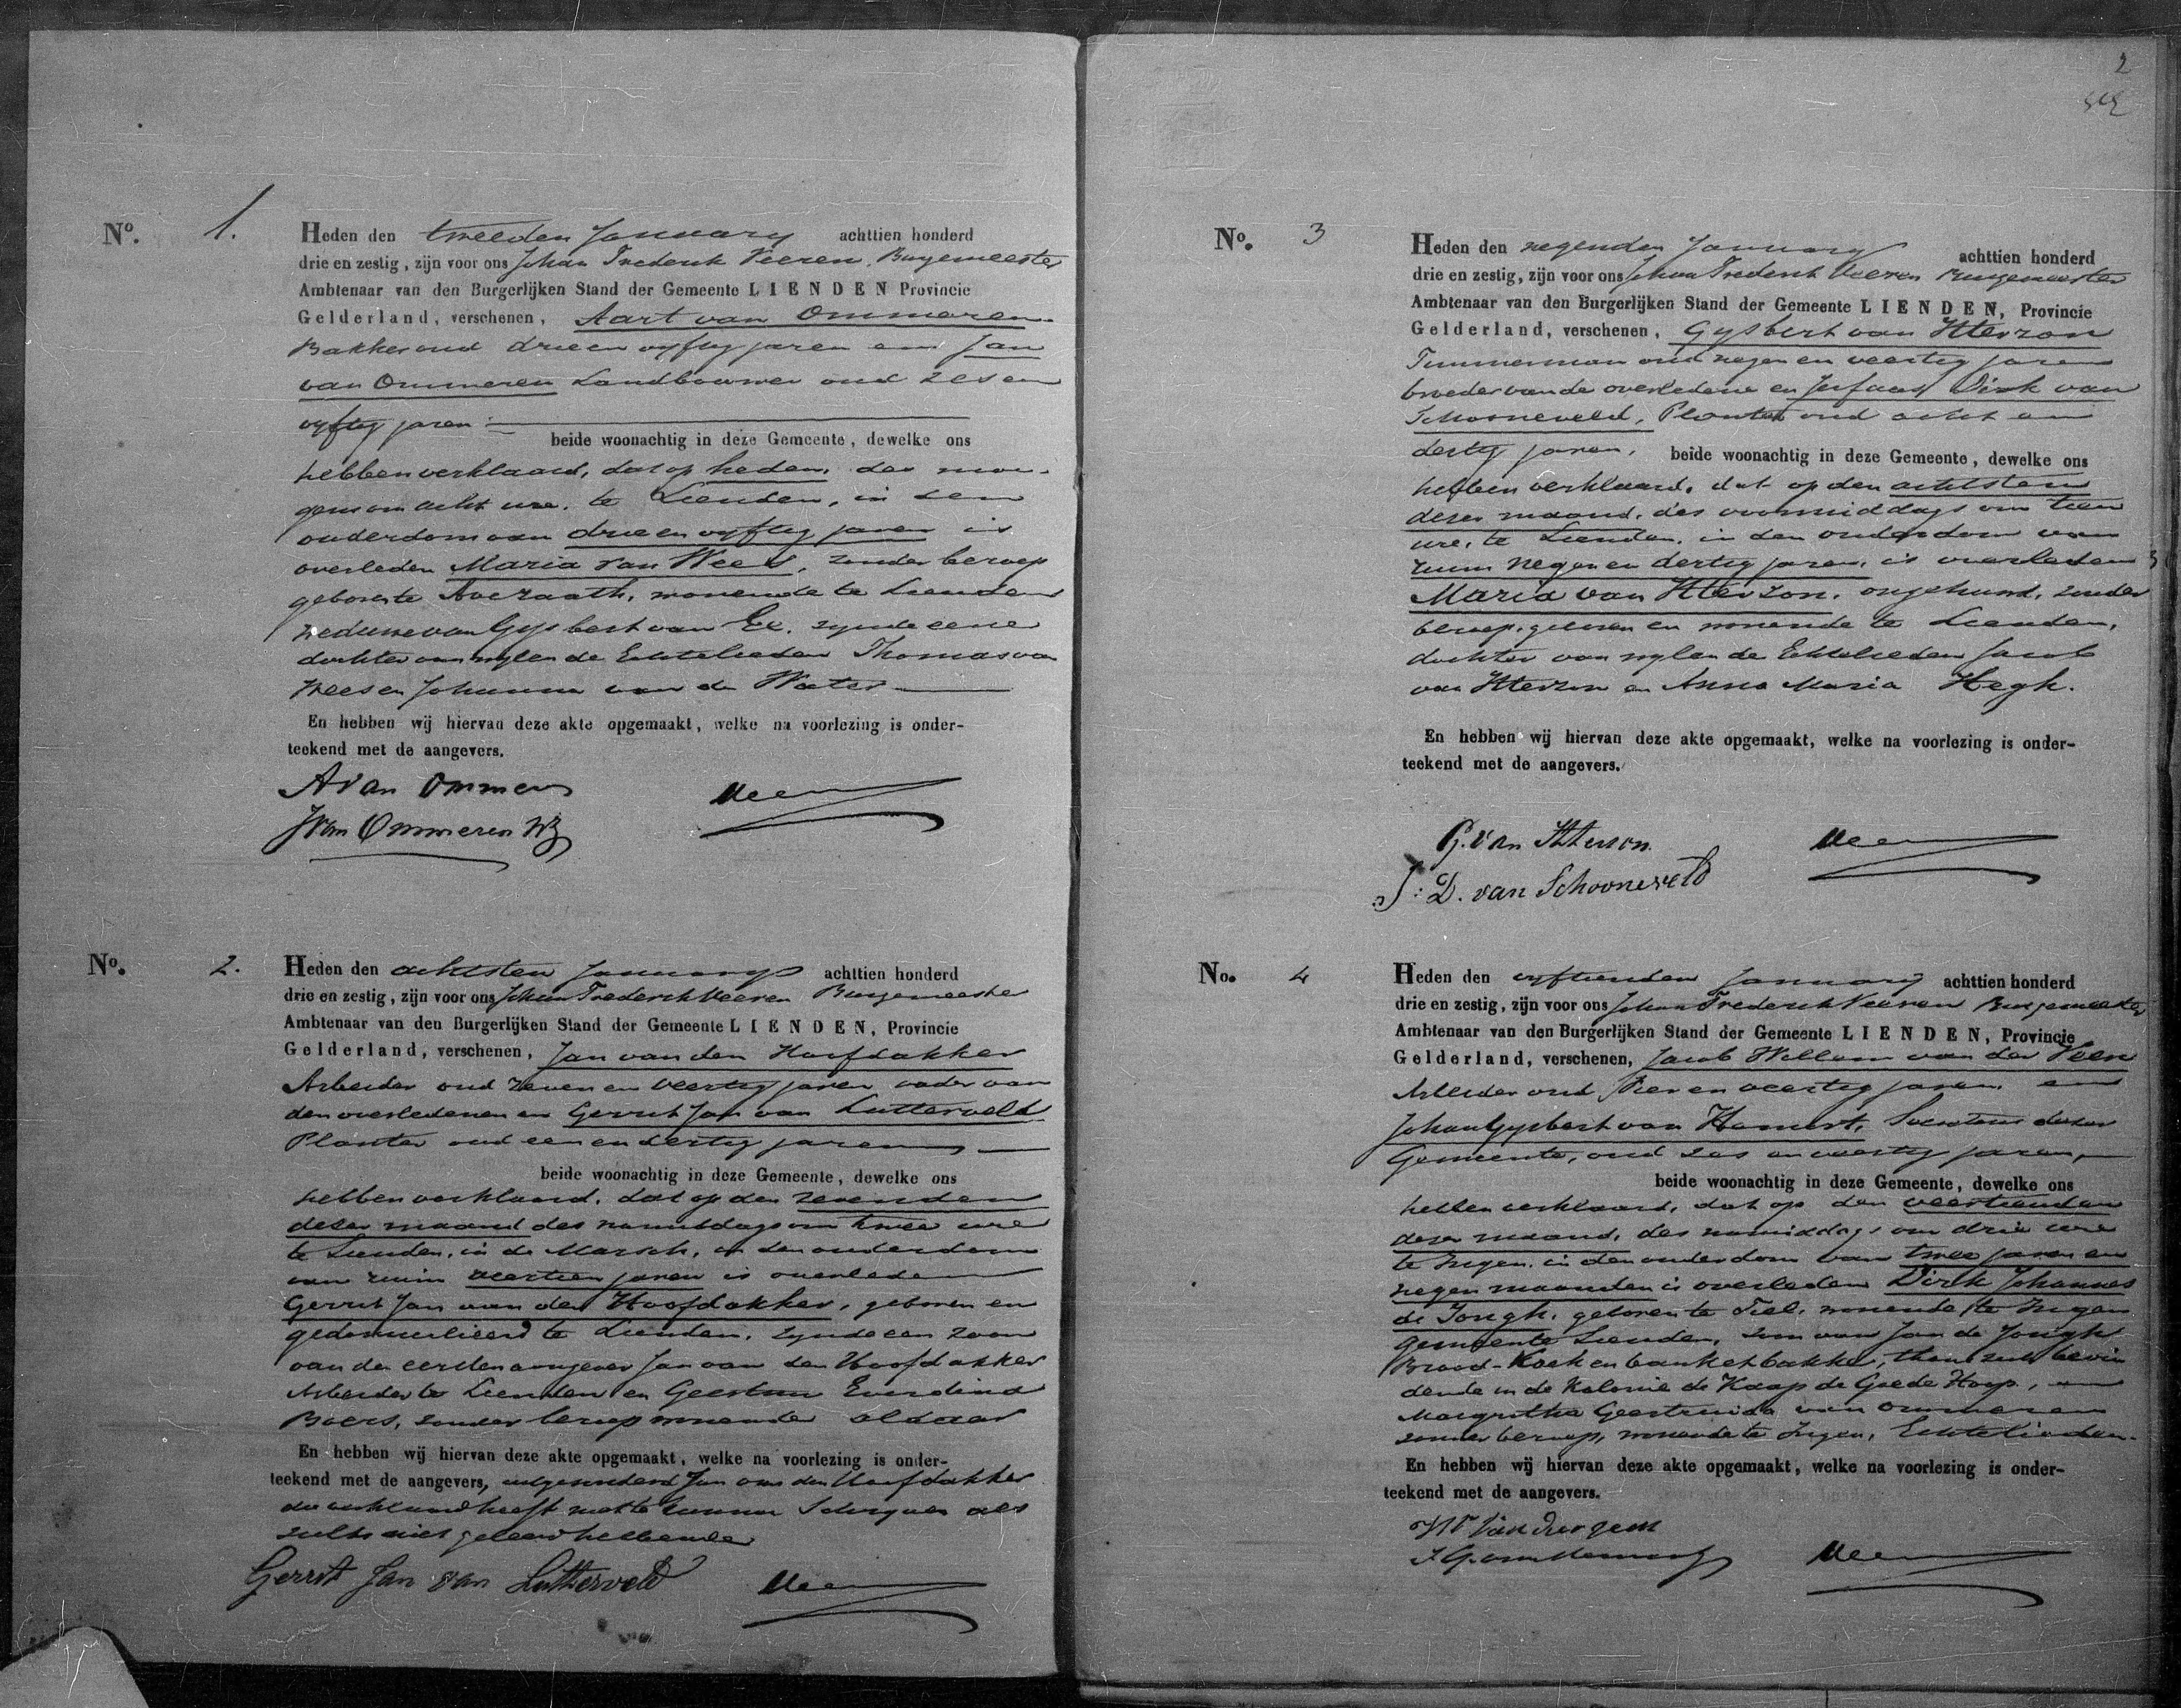 No. 1.
Heden den tweeden January achttien honderd
drie en zestig, zijn voor ons Johan Frederik Veeren, Burgemeester
Ambtenaar van den Burgerlijken Stand der Gemeente LIENDEN Provincie
Gelderland, verschenen, Aart van Ommeren
Bakker oud drie en vyftig jaren en Jan
van Ommeren Landbouwer oud zes en
vyftig jaren
beide woonachtig in deze Gemeente, dewelke ons
hebben verklaard, dat op heden, des mor-
gens om acht ure, te Lienden, in den
ouderdom van drie en vyftig jaren is
overleden Maria van Wees, zonder beroep
geboren te Avezaath, wonende te Lienden
weduwe van Gysbert van Ee, zynde eene
dochter van wylen de Echtelieden Thomas van
Wees en Johanna van de Water
En hebben wij hiervan deze akte opgemaakt, welke na voorlezing is onder-
teekend met de aangevers.
A van Ommeren
J van Ommeren Wz
Veeren
No. 2.
Heden den achtsten January achttien honderd
drie en zestig, zijn voor ons Johan Frederik Veeren Burgemeester
Ambtenaar van den Burgerlijken Stand der Gemeente LIENDEN, Provincie
Gelderland, verschenen, Jan van den Hoofdakker
Arbeider oud zeven en veertig jaren vader van
den overledenen en Gerrit Jan van Lutterveld
Planter oud een en dertig jaren
beide woonachtig in deze Gemeente, dewelke ons
hebben verklaard, dat op den zevenden
dezer maand des namiddags om twee ure
te Lienden, in de Marsch, in den ouderdom
van ruim veertien jaren is overleden
Gerrit Jan van den Hoofdakker, geboren en
gedomicilieerd te Lienden, zynde een zoon
van den eersten aangever Jan van den Hoofdakker
Arbeider te Lienden en Geertrui Everdina
Boers, zonder beroep wonende aldaar
En hebben wij hiervan deze akte opgemaakt, welke na voorlezing is onder-
teekend met de aangevers, uitgezonderd Jan van den Hoofdakker
die verklaard heeft niet te kunnen schryven als
zulks niet geleerd hebbende
Gerrit Jan van Lutterveld
Veeren
2
No. 3
Heden den negenden January achttien honderd
drie en zestig, zijn voor ons Johan Frederik Veeren Burgemeester
Ambtenaar van den Burgerlijken Stand der Gemeente LIENDEN, Provincie
Gelderland, verschenen, Gysbert van Itterzon
Timmerman oud negen en veertig jaren
broeder van de overledene en Dirk van
Schooneveld, Planter oud acht en
dertig jaren, beide woonachtig in deze Gemeente, dewelke ons
hebben verklaard, dat op den achtsten
dezer maand, des voormiddags om tien
ure, te Lienden, in den ouderdom van
ruim negen en dertig jaren, is overleden
Maria van Itterzon, ongehuwd, zonder
beroep, geboren en wonende te Lienden,
dochter van wylen de Echtelieden Jacob
van Itterzon en Anna Maria Hegh.
En hebben wij hiervan deze akte opgemaakt, welke na voorlezing is onder-
teekend met de aangevers.
G. van Itterson
J: D. van Schooneveld
Veeren
No. 4
Heden den vyftienden January achttien honderd
drie en zestig, zijn voor ons Johan Frederik Veeren Burgemeester
Ambtenaar van den Burgerlijken Stand der Gemeente LIENDEN, Provincie
Gelderland, verschenen, Jacob Willem van der
Arbeider oud vier en veertig jaren en
Johan Gysbert van Hemert, Secretaris dezer
Gemeente, oud zes en veertig jaren,
beide woonachtig in deze Gemeente, dewelke ons
hebben verklaard, dat op den veertienden
dezer maand, des namiddags om drie ure
te Ingen, in den ouderdom van twee jaren en
negen maanden is overleden Dirk Johannes
de Jongh, geboren te Tiel, wonende te Ingen
gemeente Lienden, zoon van Jan de Jongh
Brood-Koek en banketbakker, thans zich bevin
dende in de Kolonie de Kaap de Goede Hoop, en
Margritha Geertruida van Ommeren
zonder beroep, wonende te Ingen, Echtelieden.
En hebben wij hiervan deze akte opgemaakt, welke na voorlezing is onder-
teekend met de aangevers.
J. G. van Hemert
Veeren